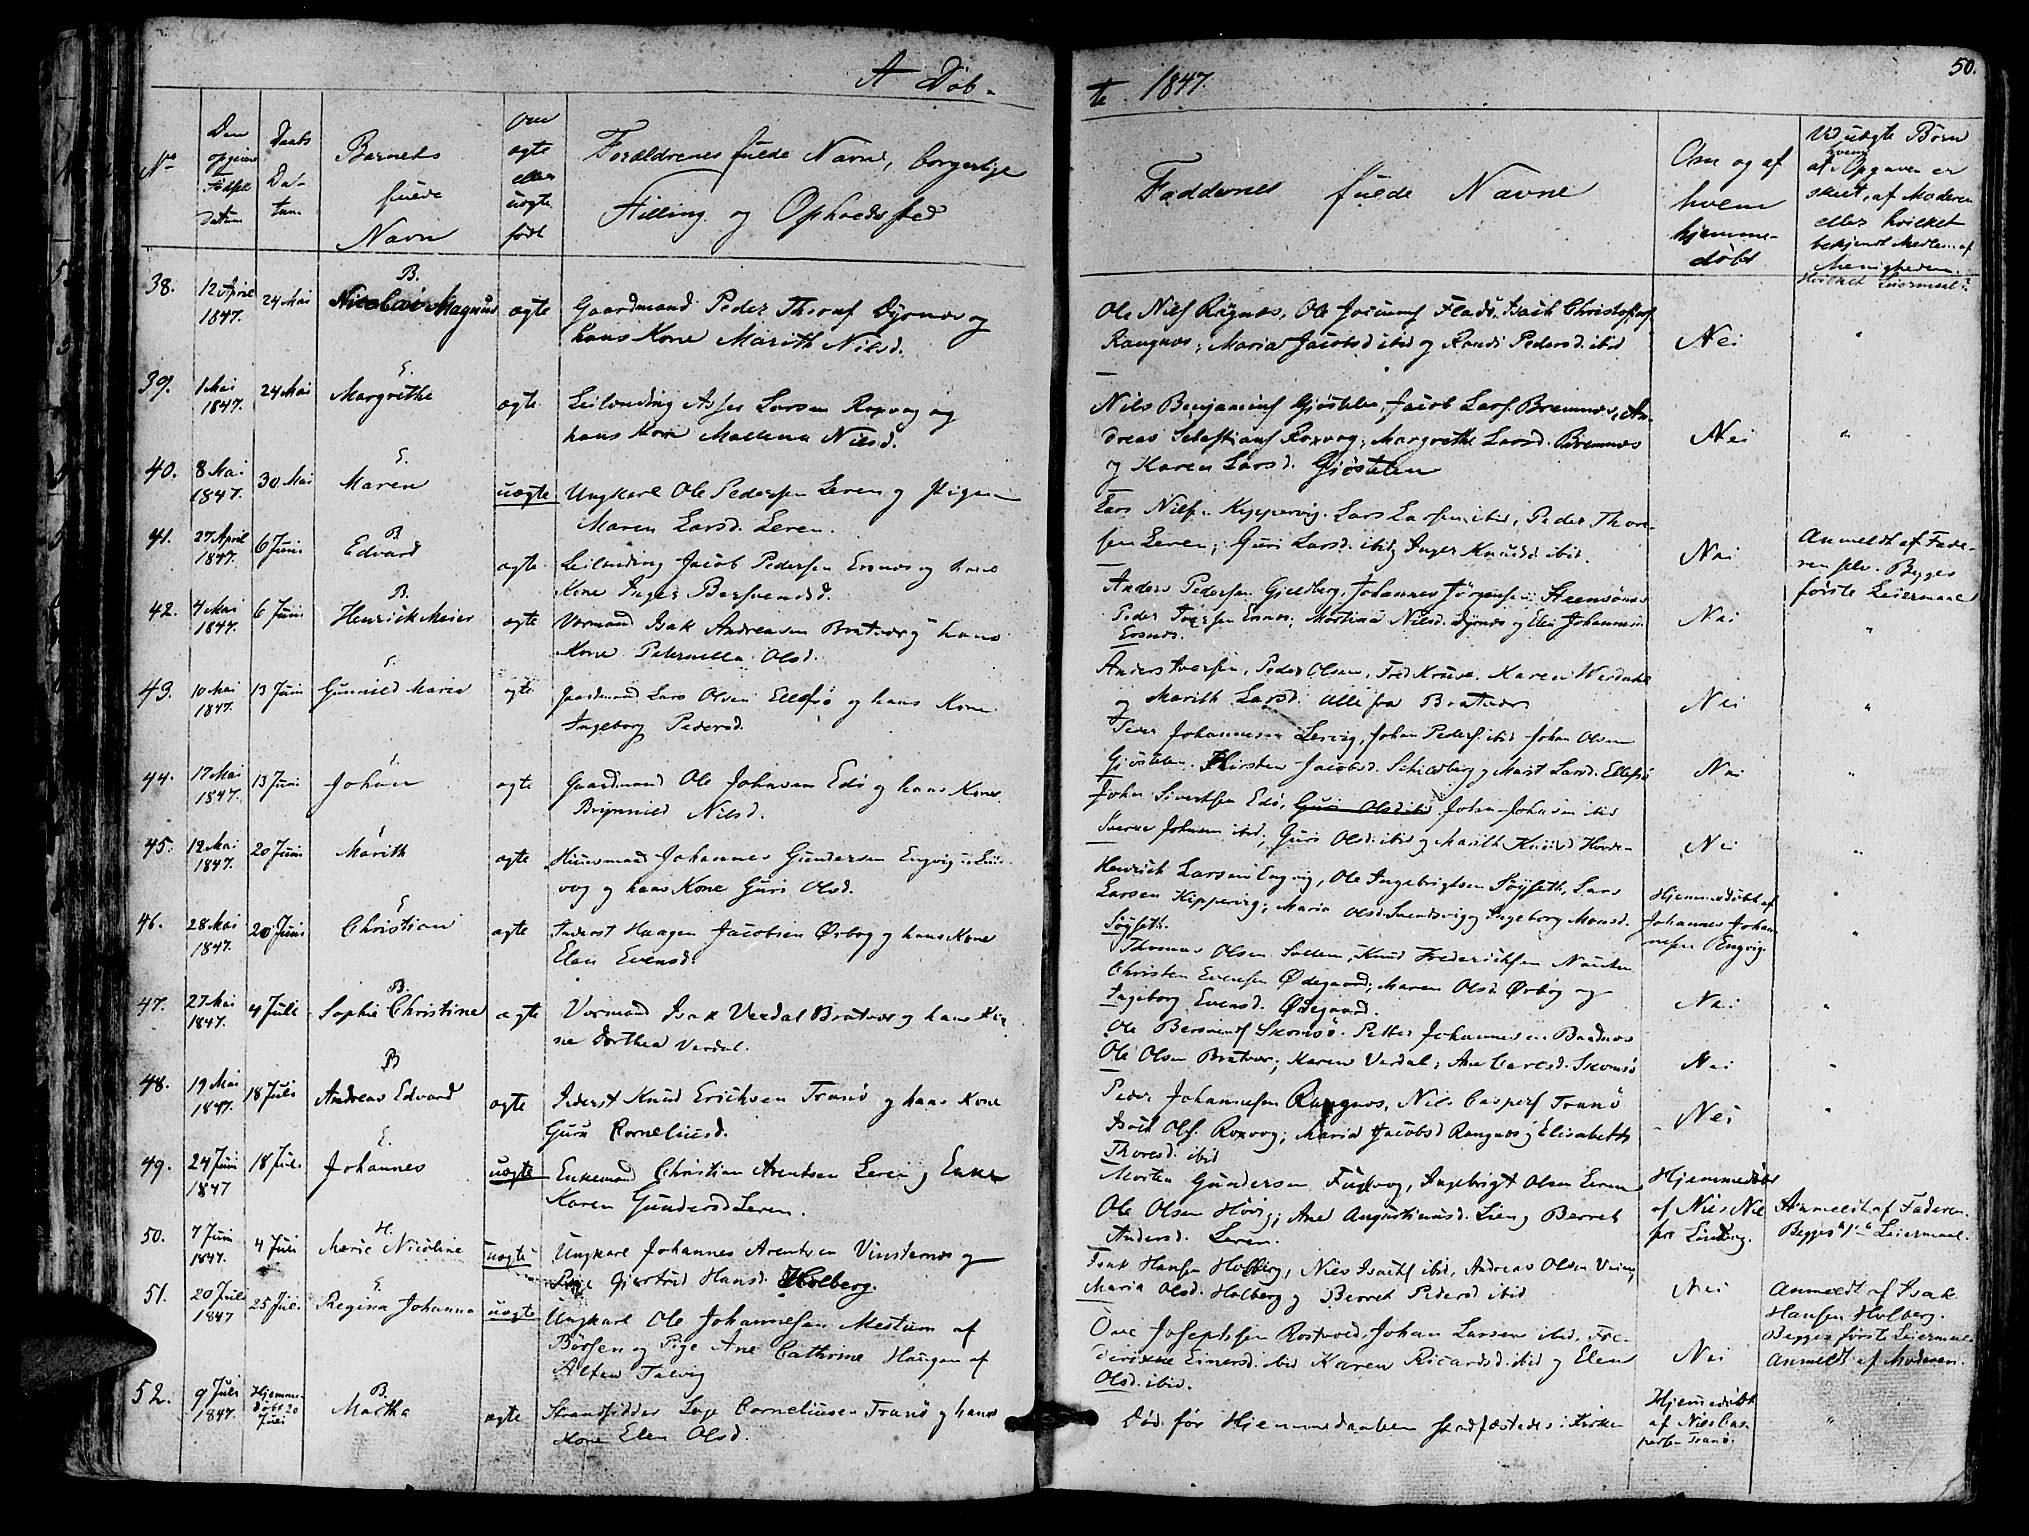 A Døb-
te 1847.
50.
No
Den opgivne Fødsels Datum
Daabs Datum
Barnets fulde Navn
Om ægte eller uægte født
Forældrenes fulde Navne, borgerlige
Stilling og Opholdssted
Faddernes fulde Navne
Om og af hvem hjemmedøbt
Ved uægte Børn af hvem Opgaven er skeet, af Moderen eller hvilket bekjendt Medlem af Menigheden. Hvilket Leiermaal?
38. 12 April 1847. 24 Mai B. Nicolai Magnus ægte Gaardmand Peder Dyrnæs og
hans Kone Marith Nilsd.
Ole Nils Ole Flads. Isach Christophers
Rangnæs; Maria Jacobsd ibid og Randi Pedersd. ibid
Nei "
39. 1 Mai 1847. 24 Mai E. Margrethe ægte Leilending Lorsen Roxvog og
hans Kone Mallena Nilsd.
Nils Benjamins Gjøstølen, Jacob Lars. Bremnæs, An-
dreas Roxvog; Margrethe Larsd. Bremnæs
og Karen Larsd. Gjøstølen
Nei "
40. 8 Mai 1847. 30 Mai E. Maren uægte Ungkarl Ole Pedersen Leren og Pigen
Maren Larsd. Leren.
Lars Nilsen Kyppervig. Lars Larsen ibid, Peder Thore-
sen Leren; Guri Larsd. ibid Inger Knudsd ibid.
Nei
Anmeldt af Fade-
ren selv. Begges
første Leiermaal
41. 27 April 1847. 6 Juni B. Edvard ægte Leilending Jacob Pedersen Ersnæs og hans
Kone Inger
Anders Pedersen Gjeldberg, Johannes Jørgensen Steensønæs
Peder Ersnæs; Martina Nilsd. Dyrnæs og Elen Johannesd
Ersnæs.
Nei "
42. 4 Mai 1847. 6 Juni B. Henrick Meier ægte Vormand Isak Andreasen Bratvær og hans
Kone Peternella Olsd.
Anders Iversen, Peder Olsen, Fred Kruse, Karen Werdahl
og Marith Larsd. alle fra Bratvær
Nei "
43. 10 Mai 1847. 13 Juni E. Gunnild Maria ægte Gaardmand Lars Olsen Ellefsø og hans Kone
Ingeborg Pedersd.
Peder Johannesen Lervig, Johan Peders. ibid Johan Olsen
Gjøstølen. Kirsten Jacobsd. Schildberg og Marit Larsd. Ellefsø
Nei "
44. 17 Mai 1847. 13 Juni Johan ægte Gaardmand Ole Johansen Edø og hans Kone
Brynnild Nilsd.
Johan Sivertsen Edø, Guri Olsd ibid Johan Johansen ibid
Iverine Johansen ibid; Guri Olsd. ibid og Marith Knudsd
Nei "
45. 12 Mai 1847. 20 Juni Marith ægte Huusmand Johannes Gundersen Engvig
og hans Kone Guri Olsd.
Henrich Larsen Engvig, Ole Ingebrigtsen Søyseth, Lars
Larsen Kippervig; Maria Olsd. Svendsvig og Ingeborg Monsd.
Søyseth.
Hjemmedøbt af
Johannes Johan-
nesen Engvig
"
46. 28 Mai 1847. 20 Juni E Christian ægte Inderst Haagen Jacobsen Ørbog og hans Kone
Elen Evensd.
Thomas Olsen Sollem, Knud Frederichsen
Christen Evensen Ødegaard; Maren Olsd. Ørbog og
Ingeborg Evensd. Ødegaard.
Nei "
47. 27 Mai 1847. 4 Juli B. Sophie Christine ægte Vormand Isak Verdal Bratvær og hans Ko-
ne Dorthea Verdal.
Ole Skomsø. Petter Johannesen
Ole Olsen Bratvær; Karen Verdal; Ane Larsd. Skomsø
Nei "
48. 19 Mai 1847. 18 Juli B Andreas Edvard ægte Inderst Knud Erichsen Tranø og hans Kone
Guru Corneliusd.
Peder Johannesen Rangnæs, Nils Caspers Tranø
Isach Ols. Roxvog; Maria Jacobsd Rangnæs og Elisabeth
Thoresd. ibid
Nei "
49. 24 Juni 1847 18 Juli E. Johannes uægte Enkemand Christian Arentsen Leren og Enke
Karen Gundersd Leren.
Morten Gundersen Fuglvog, Ingebrigt Olsen Leren
Ole Olsen Ane Augustinusd. Lien og Berret
Andersd. Leren.
Hjemmedøbt
af Nils Nil-
sen
Anmeldt af Faderen.
Begges Leiermaal.
50. 7 Juni 1847. 4 Juli H. Marie Nicoline uægte Ungkarl Johannes Arentsen Vinsternæs og
Pige Gjertrud Hansd. Holberg.
Isak Hansen Holberg, Nils Isachs ibid, Andreas Olsen
Maria Olsd. Holberg og Berret Pedersd ibid
Nei
Anmeldt af Isak
Hansen Holberg.
Begges første Leiermaal
51. 20 Juli 1847 25 Juli E. Regina Johanna uægte Ungkarl Ole Johannesen Mestum af
Børsen og Pige Ane Cathrine Haugan af
Alten Talvig
Ove Josephsen Rostvold. Johan Larsen ibid. Fre-
derikke Einersd. ibid Karen Ricardsd. ibid og Elen
Olsd. ibid.
Nei
Anmeldt af Moderen.
52. 9 Juli 1847. Hjemme-
døbt 20
Juli B. Martha ægte Strandsidder Corneliusen Tranø og hans
Kone Elen Olsd.
Død før Hjemmedaaben stadfæstedes i Kirken
Hjemmedøbt
af Nils Cas-
persen Tranø.
"